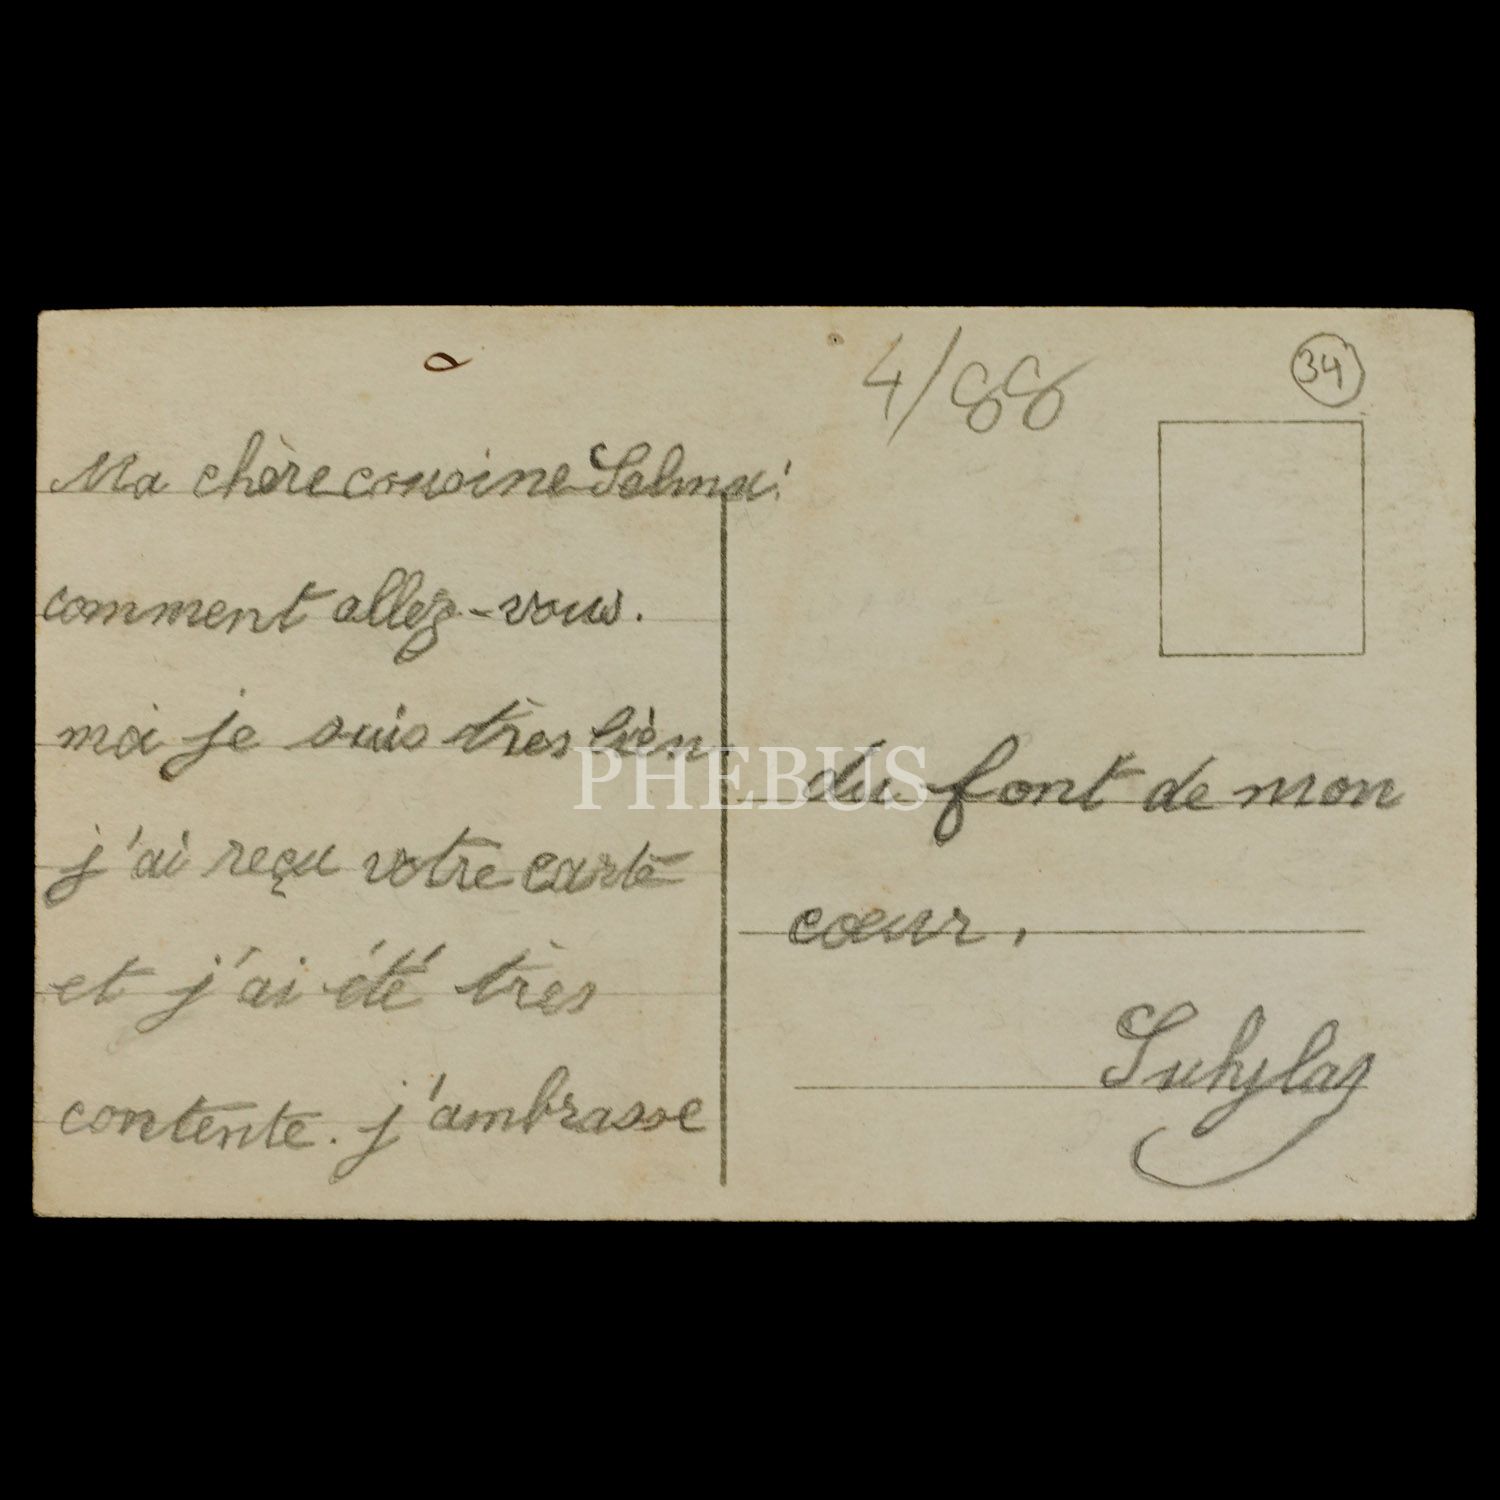 4/88
34
Ma chère cousine Selma!
comment allez-vous.
moi je suis très bièn
j'ai reçu votre carte
et j'ai été très
contente. j'ambrasse
du font de mon
cœur.
PHEBUS